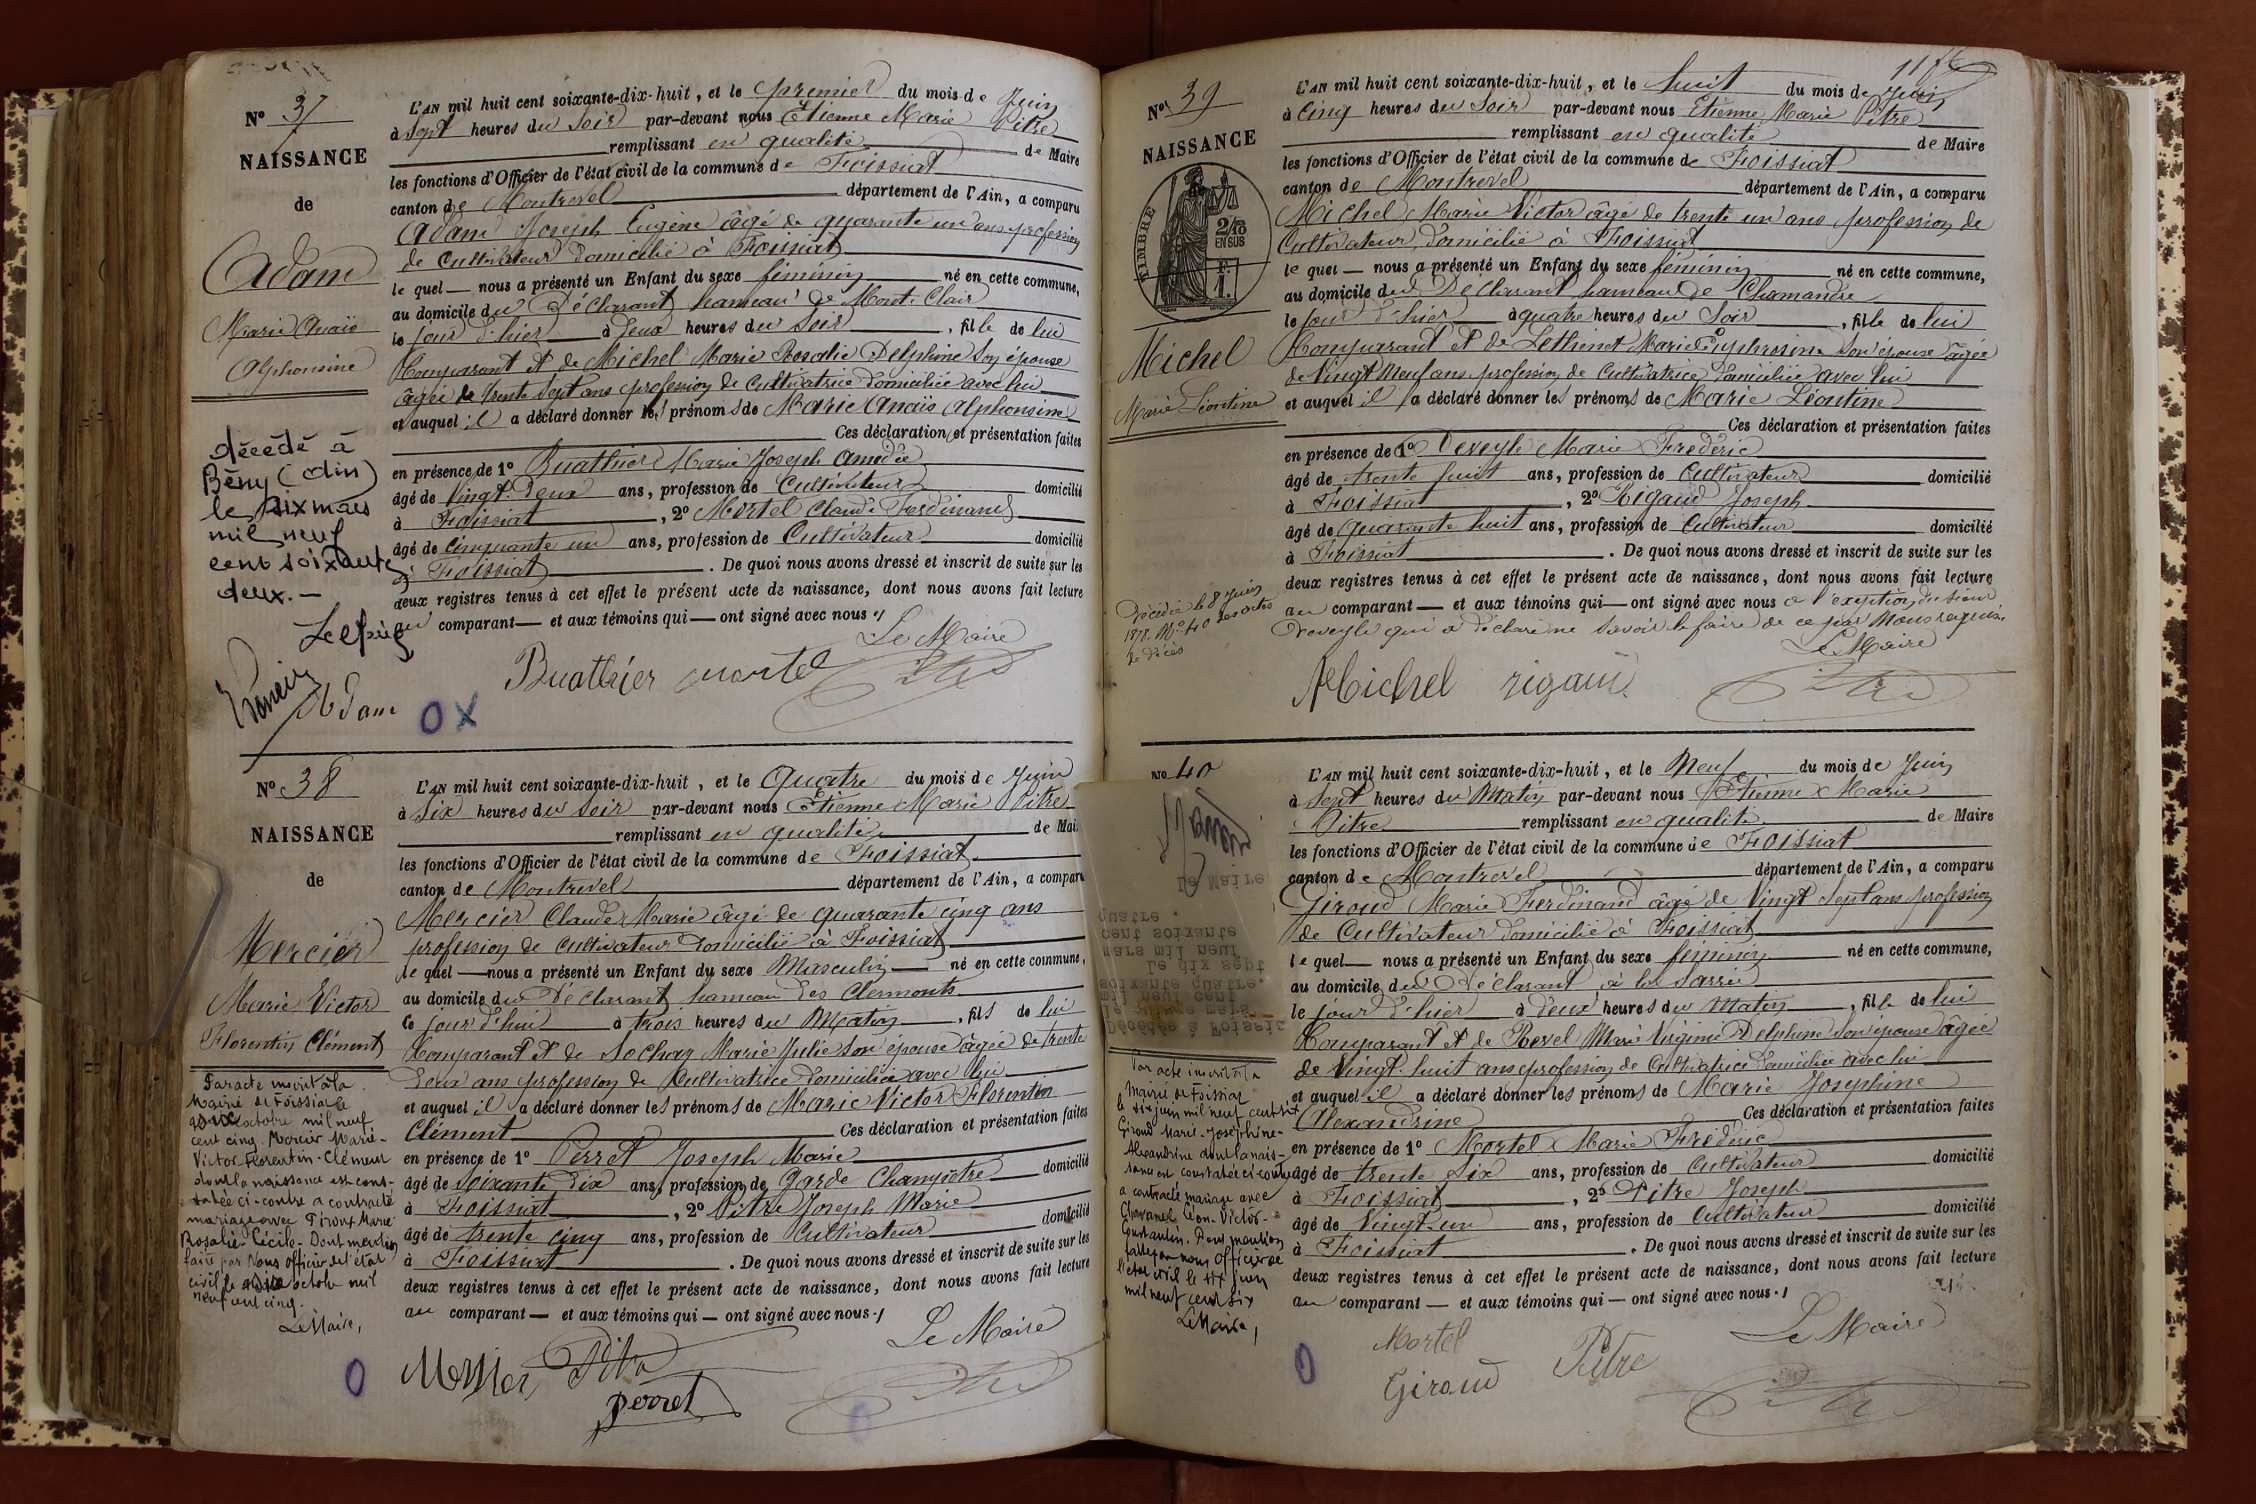 N° 37
NAISSANCE
de
Adam
Marie Anaïs
Alphonsine
décédé à
Bény (Ain)
le dix mars
mil neuf
cent soixante
deux. —
L'AN mil huit cent soixante-dix-huit, et le premier du mois de Juin
à Sept heures du Soir par-devant nous Etienne Marie Pitre
remplissant en qualité de Maire
les fonctions d'Officier de l'état civil de la commune de Foissiat
canton de Montrevel département de l'Ain, a comparu
Adam Joseph Eugène âgé de quarante un ans profession
de Cultivateur domicilié à Foissiat
le quel — nous a présenté un Enfant du sexe féminin né en cette commune,
au domicile du Déclarant hameau de Mont-Clair
le jour d'hier à deux heures du Soir, fille de lui
Comparant et de Michel Marie Rosalie Delphine son épouse
âgée de trente sept ans profession de Cultivatrice domiciliée avec lui
et auquel il a déclaré donner les prénoms de Marie Anaïs Alphonsine
Ces déclaration et présentation faites
en présence de 1° Buathier Marie Joseph Amédée
âgé de Vingt-deux ans, profession de Cultivateur domicilié
à Foissiat, 2° Mortel Claude Ferdinand
âgé de cinquante un ans, profession de Cultivateur domicilié
à Foissiat. De quoi nous avons dressé et inscrit de suite sur les
deux registres tenus à cet effet le présent acte de naissance, dont nous avons fait lecture
au comparant — et aux témoins qui — ont signé avec nous
Le Maire
Buathier Mortel Pitre
Adam
O X
N° 38
NAISSANCE
de
Mercier
Marie Victor
Florentin Clément
Par acte inscrit à la
Mairie de Foissiat le
octobre mil neuf
cent cinq. Mercier Marie-
Victor Florentin-Clément
dont la naissance est cons-
tatée ci-contre a contracté
mariage avec Piroux Marie
Rosalie-Cécile. Dont mention
faite par Nous officier de l'état
civil le octobre mil
neuf cent cinq.
Le Maire,
L'AN mil huit cent soixante-dix-huit, et le Quatre du mois de Juin
à Six heures du Soir par-devant nous Etienne Marie Pitre
remplissant en qualité de Mai
les fonctions d'Officier de l'état civil de la commune de Foissiat
canton de Montrevel département de l'Ain, a comparu
Mercier Claude Marie âgé de quarante cinq ans
profession de Cultivateur domicilié à Foissiat
le quel — nous a présenté un Enfant du sexe Masculin né en cette commune,
au domicile du Déclarant hameau des Clermonts
le jour d'hui à trois heures du Matin, fils de lui
Comparant et de Sochay Marie Julie son épouse âgée de trente
deux ans profession de Cultivatrice domiciliée avec lui
et auquel il a déclaré donner les prénoms de Marie Victor Florentin
Clément Ces déclaration et présentation faites
en présence de 1° Perret Joseph Marie
âgé de soixante dix ans, profession de Garde Champêtre domicilié
à Foissiat, 2° Pitre Joseph Marie
âgé de trente cinq ans, profession de Cultivateur domicilié
à Foissiat. De quoi nous avons dressé et inscrit de suite sur les
deux registres tenus à cet effet le présent acte de naissance, dont nous avons fait lecture
au comparant — et aux témoins qui — ont signé avec nous
Le Maire
Mercier Pitre
perret
O
N° 39
NAISSANCE
TIMBRE
2/10
EN SUS
F.
1.
Michel
Marie Léontine
Décédée le 8 Juin
1878. N° 40 des actes
de décès
L'AN mil huit cent soixante-dix-huit, et le huit du mois de Juin
à Cinq heures du Soir par-devant nous Etienne Marie Pitre
remplissant en qualité de Maire
les fonctions d'Officier de l'état civil de la commune de Foissiat
canton de Montrevel département de l'Ain, a comparu
Michel Marie Victor âgé de trente un ans profession de
Cultivateur domicilié à Foissiat
le quel — nous a présenté un Enfant du sexe féminin né en cette commune,
au domicile du Déclarant hameau de Chamandre
le jour d'hier à quatre heures du Soir, fille de lui
Comparant et de Lethenet Marie Euphrosine son épouse âgée
de Vingt Neuf ans profession de Cultivatrice domiciliée avec lui
et auquel il a déclaré donner les prénoms de Marie Léontine
Ces déclaration et présentation faites
en présence de 1° Deveyle Marie Frédéric
âgé de trente huit ans, profession de Cultivateur domicilié
à Foissiat, 2° Rigaud Joseph
âgé de quarante huit ans, profession de Cultivateur domicilié
à Foissiat. De quoi nous avons dressé et inscrit de suite sur les
deux registres tenus à cet effet le présent acte de naissance, dont nous avons fait lecture
au comparant — et aux témoins qui — ont signé avec nous à l'exeption du sieur
Deveyle qui a déclaré ne savoir le faire de ce par Nous requis
Le Maire
Michel rigaud Pitre
N° 40
Le Maire
quatre.
cent soixante
mars mil neuf
Le dix sept
soixante quatre.
mil neuf cent
mars
Décédée à Foissiat
Par acte inscrit à la
Mairie de Foissiat
le six juin mil neuf cent six
Giroud Marie-Joséphine-
Alexandrine dont la nais-
sance est constatée ci-contre
a contracté mariage avec
Chavanel Léon-Victor-
Constantin. Dont mention
faite par nous Officier de
l'état civil le six juin
mil neuf cent six
Le Maire,
L'AN mil huit cent soixante-dix-huit, et le Neuf du mois de Juin
à Sept heures du Matin par-devant nous Etienne Marie
Pitre remplissant en qualité de Maire
les fonctions d'Officier de l'état civil de la commune de Foissiat
canton de Montrevel département de l'Ain, a comparu
Giroud Marie Ferdinand âgé de Vingt Sept ans profession
de Cultivateur domicilié à Foissiat
le quel — nous a présenté un Enfant du sexe féminin né en cette commune,
au domicile du Déclarant à la Sarrie
le jour d'hier à deux heures du Matin, fille de lui
Comparant et de Revel Marie Virginie Delphine son épouse âgée
de Vingt-huit ans profession de Cultivatrice domiciliée avec lui
et auquel il a déclaré donner les prénoms de Marie Joséphine
Alexandrine Ces déclaration et présentation faites
en présence de 1° Mortel Marie Frédéric
âgé de trente Six ans, profession de Cultivateur domicilié
à Foissiat, 2° Pitre Joseph
âgé de Vingt-un ans, profession de Cultivateur domicilié
à Foissiat. De quoi nous avons dressé et inscrit de suite sur les
deux registres tenus à cet effet le présent acte de naissance, dont nous avons fait lecture
au comparant — et aux témoins qui — ont signé avec nous
Le Maire
Mortel
Giroud Pitre